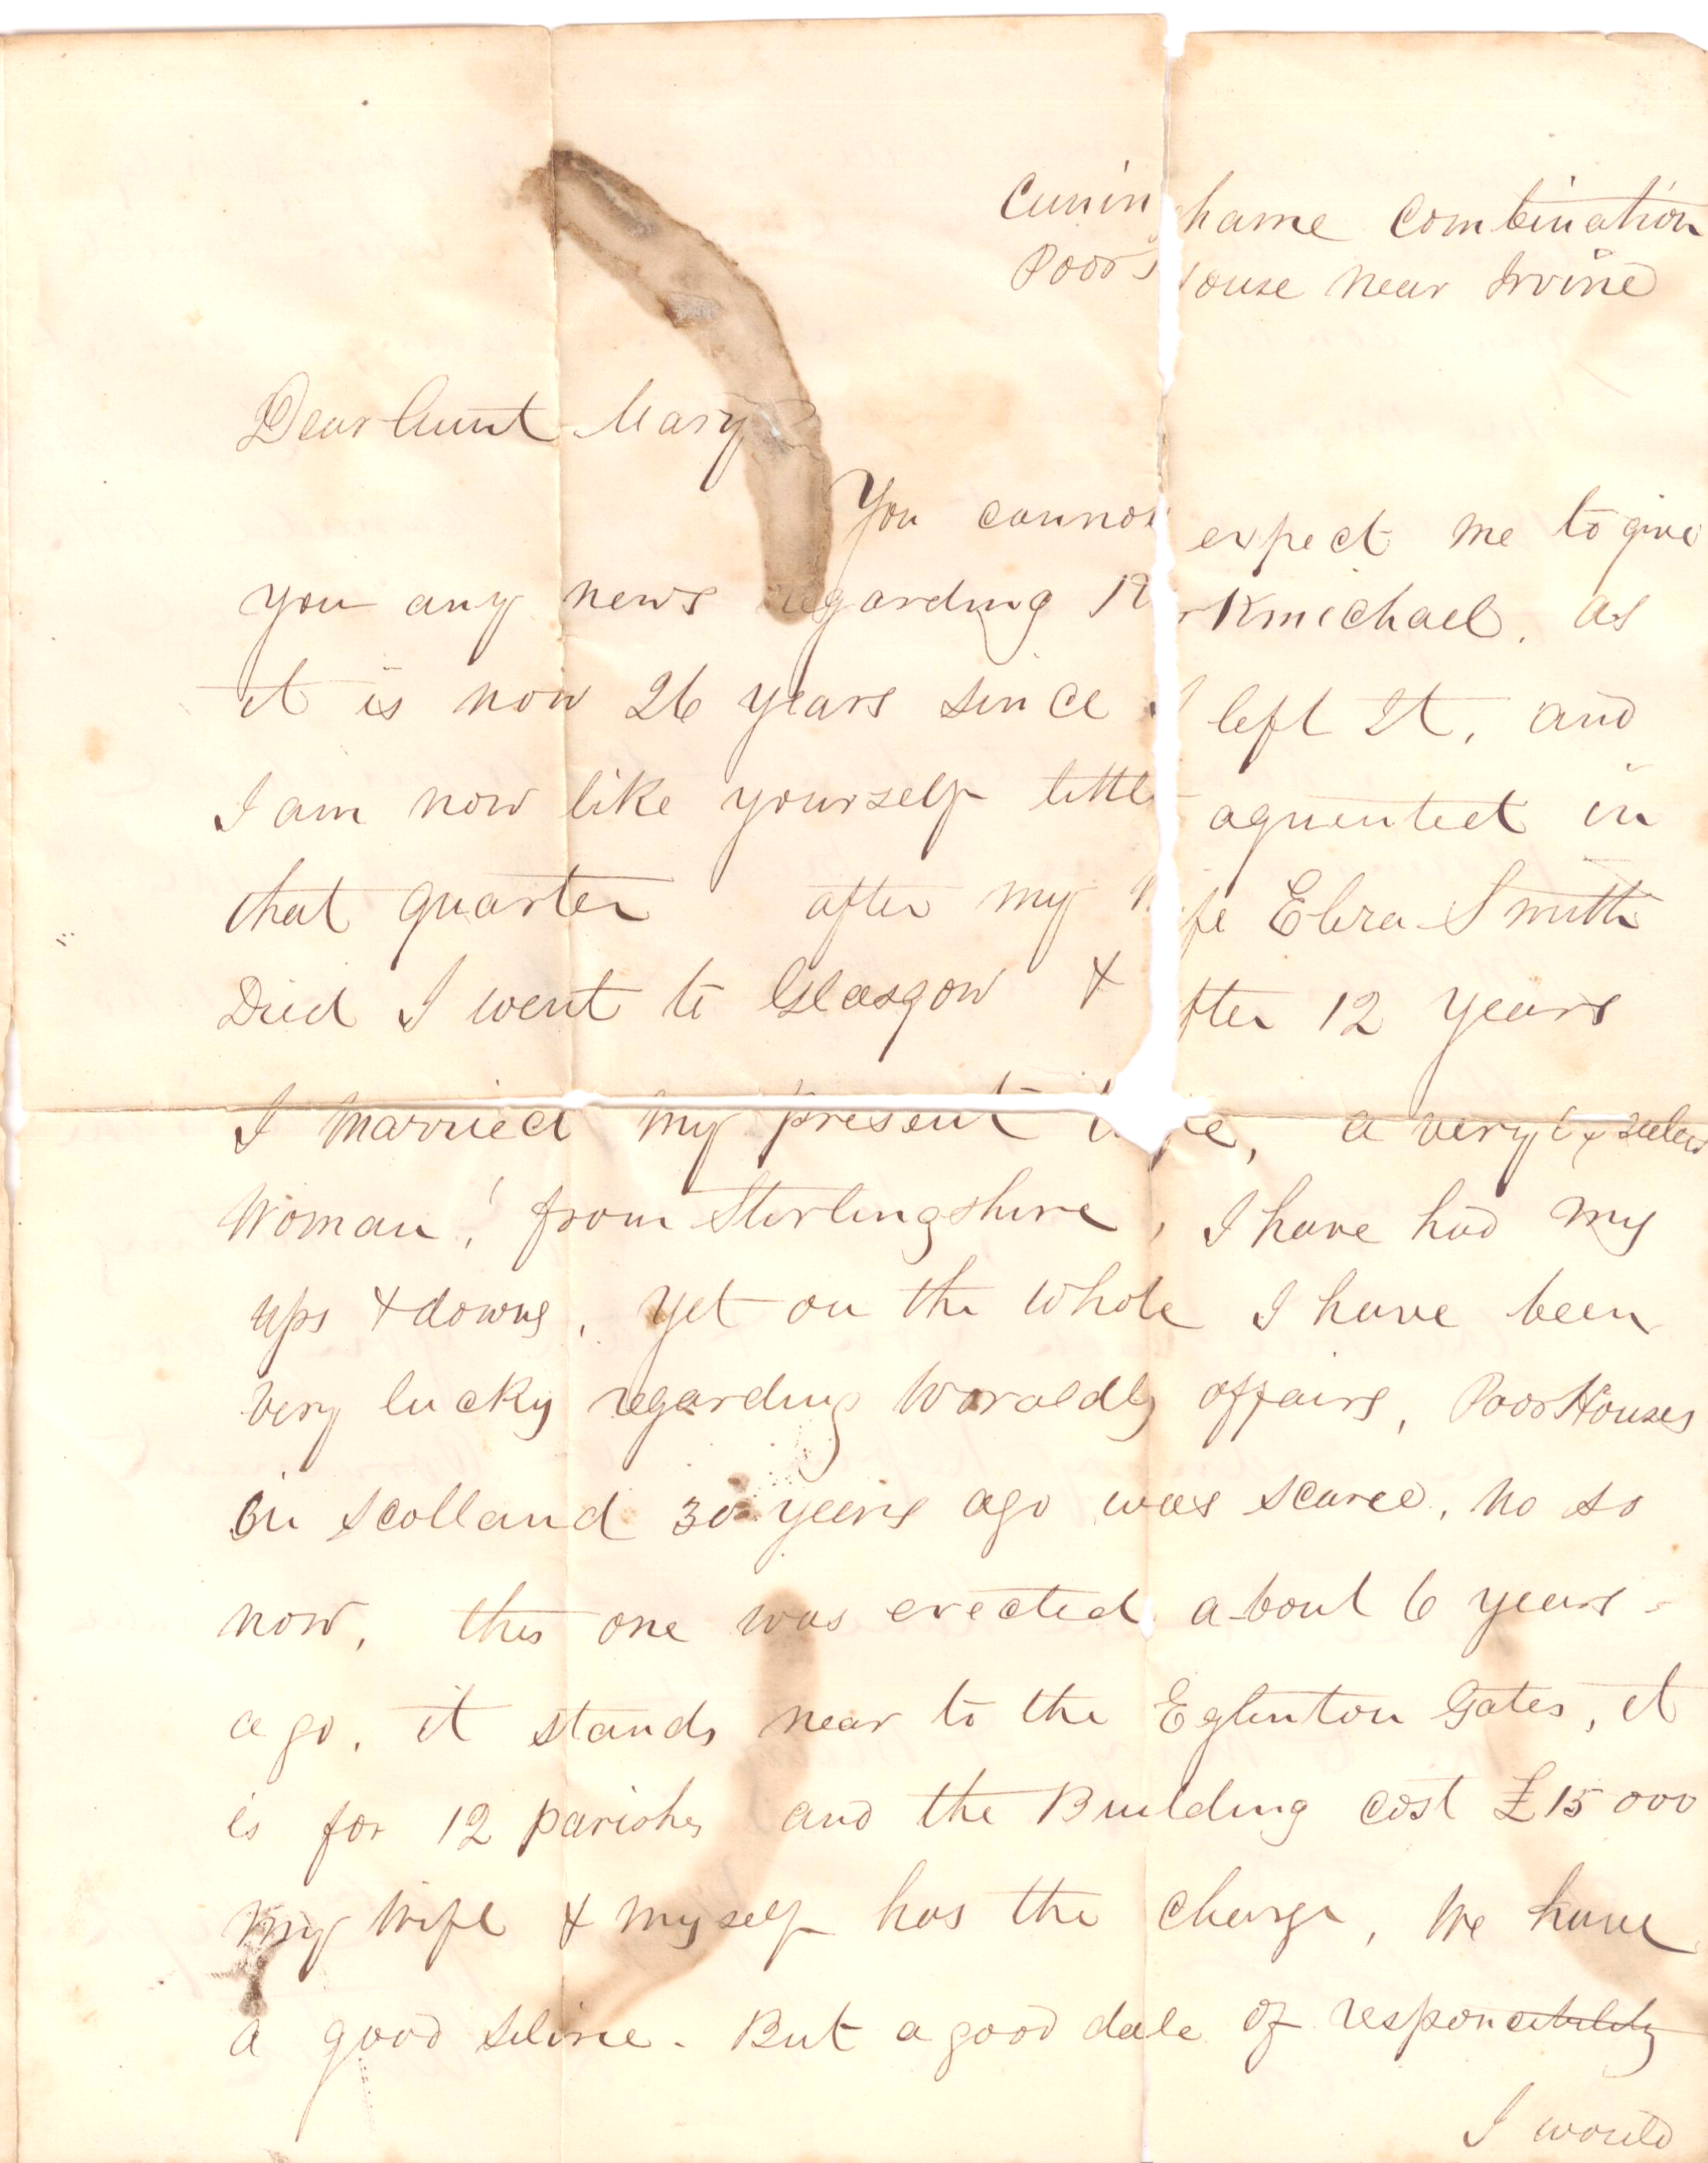 Cuninghame Combination
Poors House near Irvine
Dear Aunt Mary
You cannot expect me to give
you any news regarding Kirkmichael. as
it is now 26 years since I left It, and
I am now like yourself little aquented in
that quarter after my Wife Smith
Died I went to Glasgow & after 12 years
I married my present wife, a very
Woman! from Stirlingshire, I have had my
ups & downs, yet on the whole I have been
very lucky regarding Woraldly affairs, Poor Houses
in Scotland 30 years ago was scarce, no so
now, this one was erected about 6 years -
ago, it stands near to the Eglinton Gates, it
is for 12 parishes and the Building cost £15000
my Wife & myself has the charge, We have
a good . But a good dale of responcibility
I would